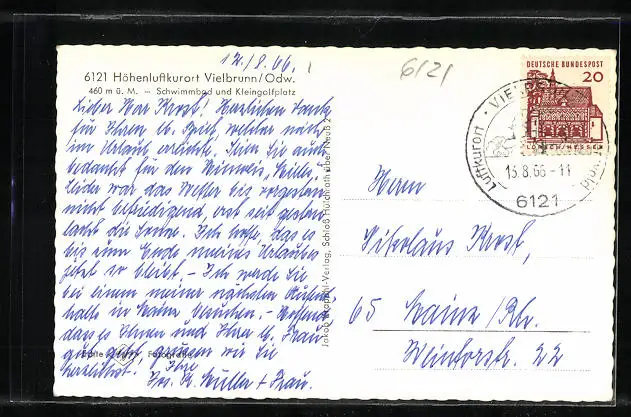 12./8.66.
6121
6121 Höhenluftkurort Vielbrunn/Odw.
460 m ü. M. — Schwimmbad und Kleingolfplatz
Lieber Herr Krost! Herzlichen Dank
für Ihren lb. Brief, welcher mich
im Urlaub erreicht. Seien Sie auch
bedankt für den Hinweis,
Leider war das Wetter bis vorgestern
nicht befriedigend, erst seit gestern
lacht die Sonne. Ich hoffe, das es
bis zum Ende meines Urlaubes
jetzt so bleibt. – Ich werde Sie
bei einem meiner nächsten Aufent-
halte in Mainz besuchen. – Hoffend
dass es Ihnen und Ihrer lb. Frau
gut geht, grüssen wir Sie
herzlichst. Ihre
Müller + Frau.
Jakob Krapohl-Verlag, Schloß Hülchrath über Neuß 2
DEUTSCHE BUNDESPOST
20
LORSCH/HESSEN
Luftkurort · VIELBRUNN
13.8.66-11
6121
Herrn
Nikolaus Krost,
65 Mainz/Rh.
Weintorstr. 22